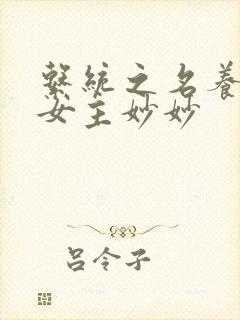 繫統之名養
女主妙妙
呂令子